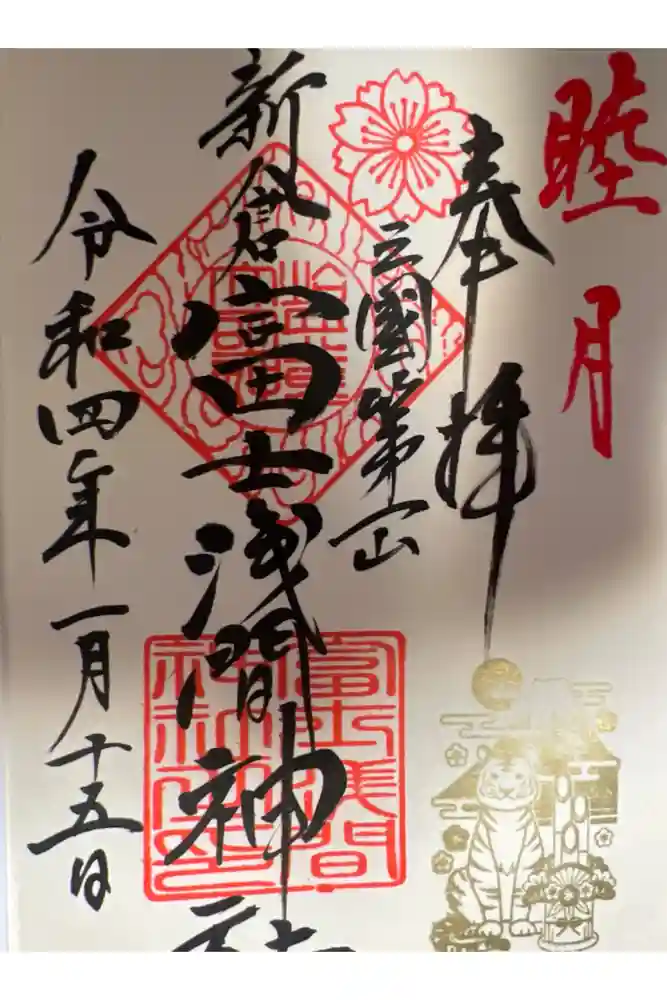 睦月
奉拝
三國第一山
新倉富士浅間神社
令和四年一月十五日
富士浅間
神社之印